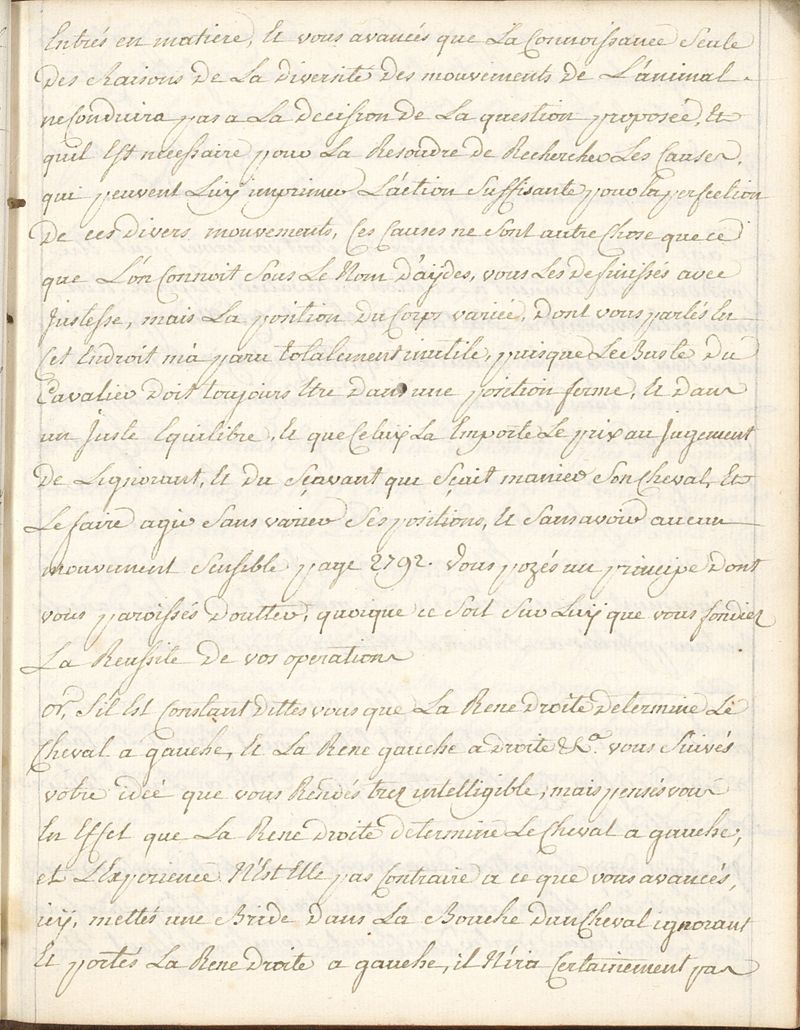 Entrés en matiere, Et vous avancés que La Connoissance Seule
Des Raisons de La diversité des mouvements de L'animal
ne Conduira pas a La decision de La question proposée, Et
quil Est necessaire pour La Resoudre de Rechercher Les Causes,
qui peuvent Luy imprimer L'action Suffisante pour la perfection
De ces divers mouvements, Ces Causes ne Sont autre Chose que ce
que L'on Connoit Sous Le Nom D'aydes, vous Les definissés avec
Justesse, mais La position Du Corps variée, Dont vous parlés En
Cet Endroit m'a paru totalement inutile, puisque Le Buste du
Cavalier Doit toujours Etre Dans une position ferme, Et Dans
un Juste Equilibre, Et que Celuy La Emporte Le prix au Jugement
de Lignorant, Et du Sçavant qui Sçait manier Son Cheval, Et
Le faire agir Sans varier Ses positions, Et Sans avoir aucun
mouvement Sensible page 2792. Vous pozés un principe Dont
vous paroissés Doutter, quoique ce Soit Sur Luy que vous fondiez
La Reussite de vos operations
or, S'il Est Constant dittes vous que La Rene droite determine Le
Cheval a gauche, Et La Rene gauche a droite &c.a vous Suivés
votre ideé que vous Rendés trez intelligible, mais pensés vous
En Effet que La Rene droite determine Le Cheval a gauche,
et L'Experience N'Est Elle pas Contraire a ce que vous avancés,
icy, mettés une Bride dans La Bouche d'un Cheval ignorant
Et portés La Rene droite a gauche, il N'ira Certainement pas